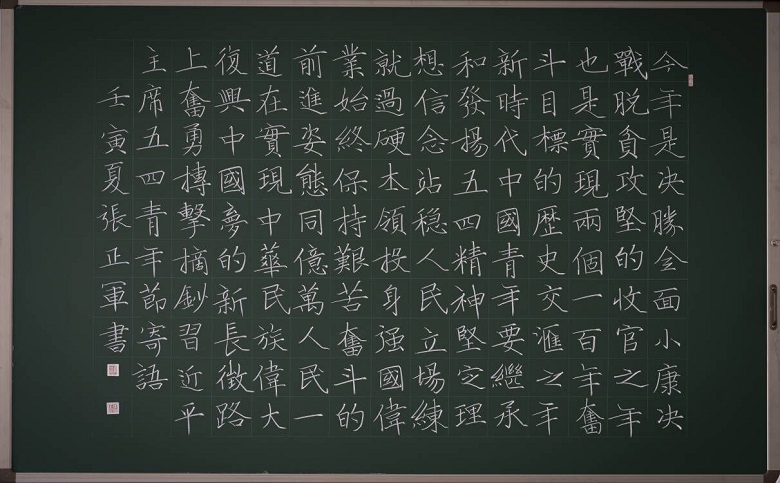 今年是決勝全面小康決
戰脫貧攻堅的收官之年
也是實現兩個一百年奮
斗目標的歷史交滙之年
新時代中國青年要繼承
和發揚五四精神堅定理
想信念站穩人民立場練
就過硬本領投身强國偉
業始終保持艱苦奮斗的
前進姿態同億萬人民一
道在實現中華民族偉大
復興中國夢的新長徵路
上奮勇搏擊摘鈔習近平
主席五四青年節寄語
壬寅夏張正軍書